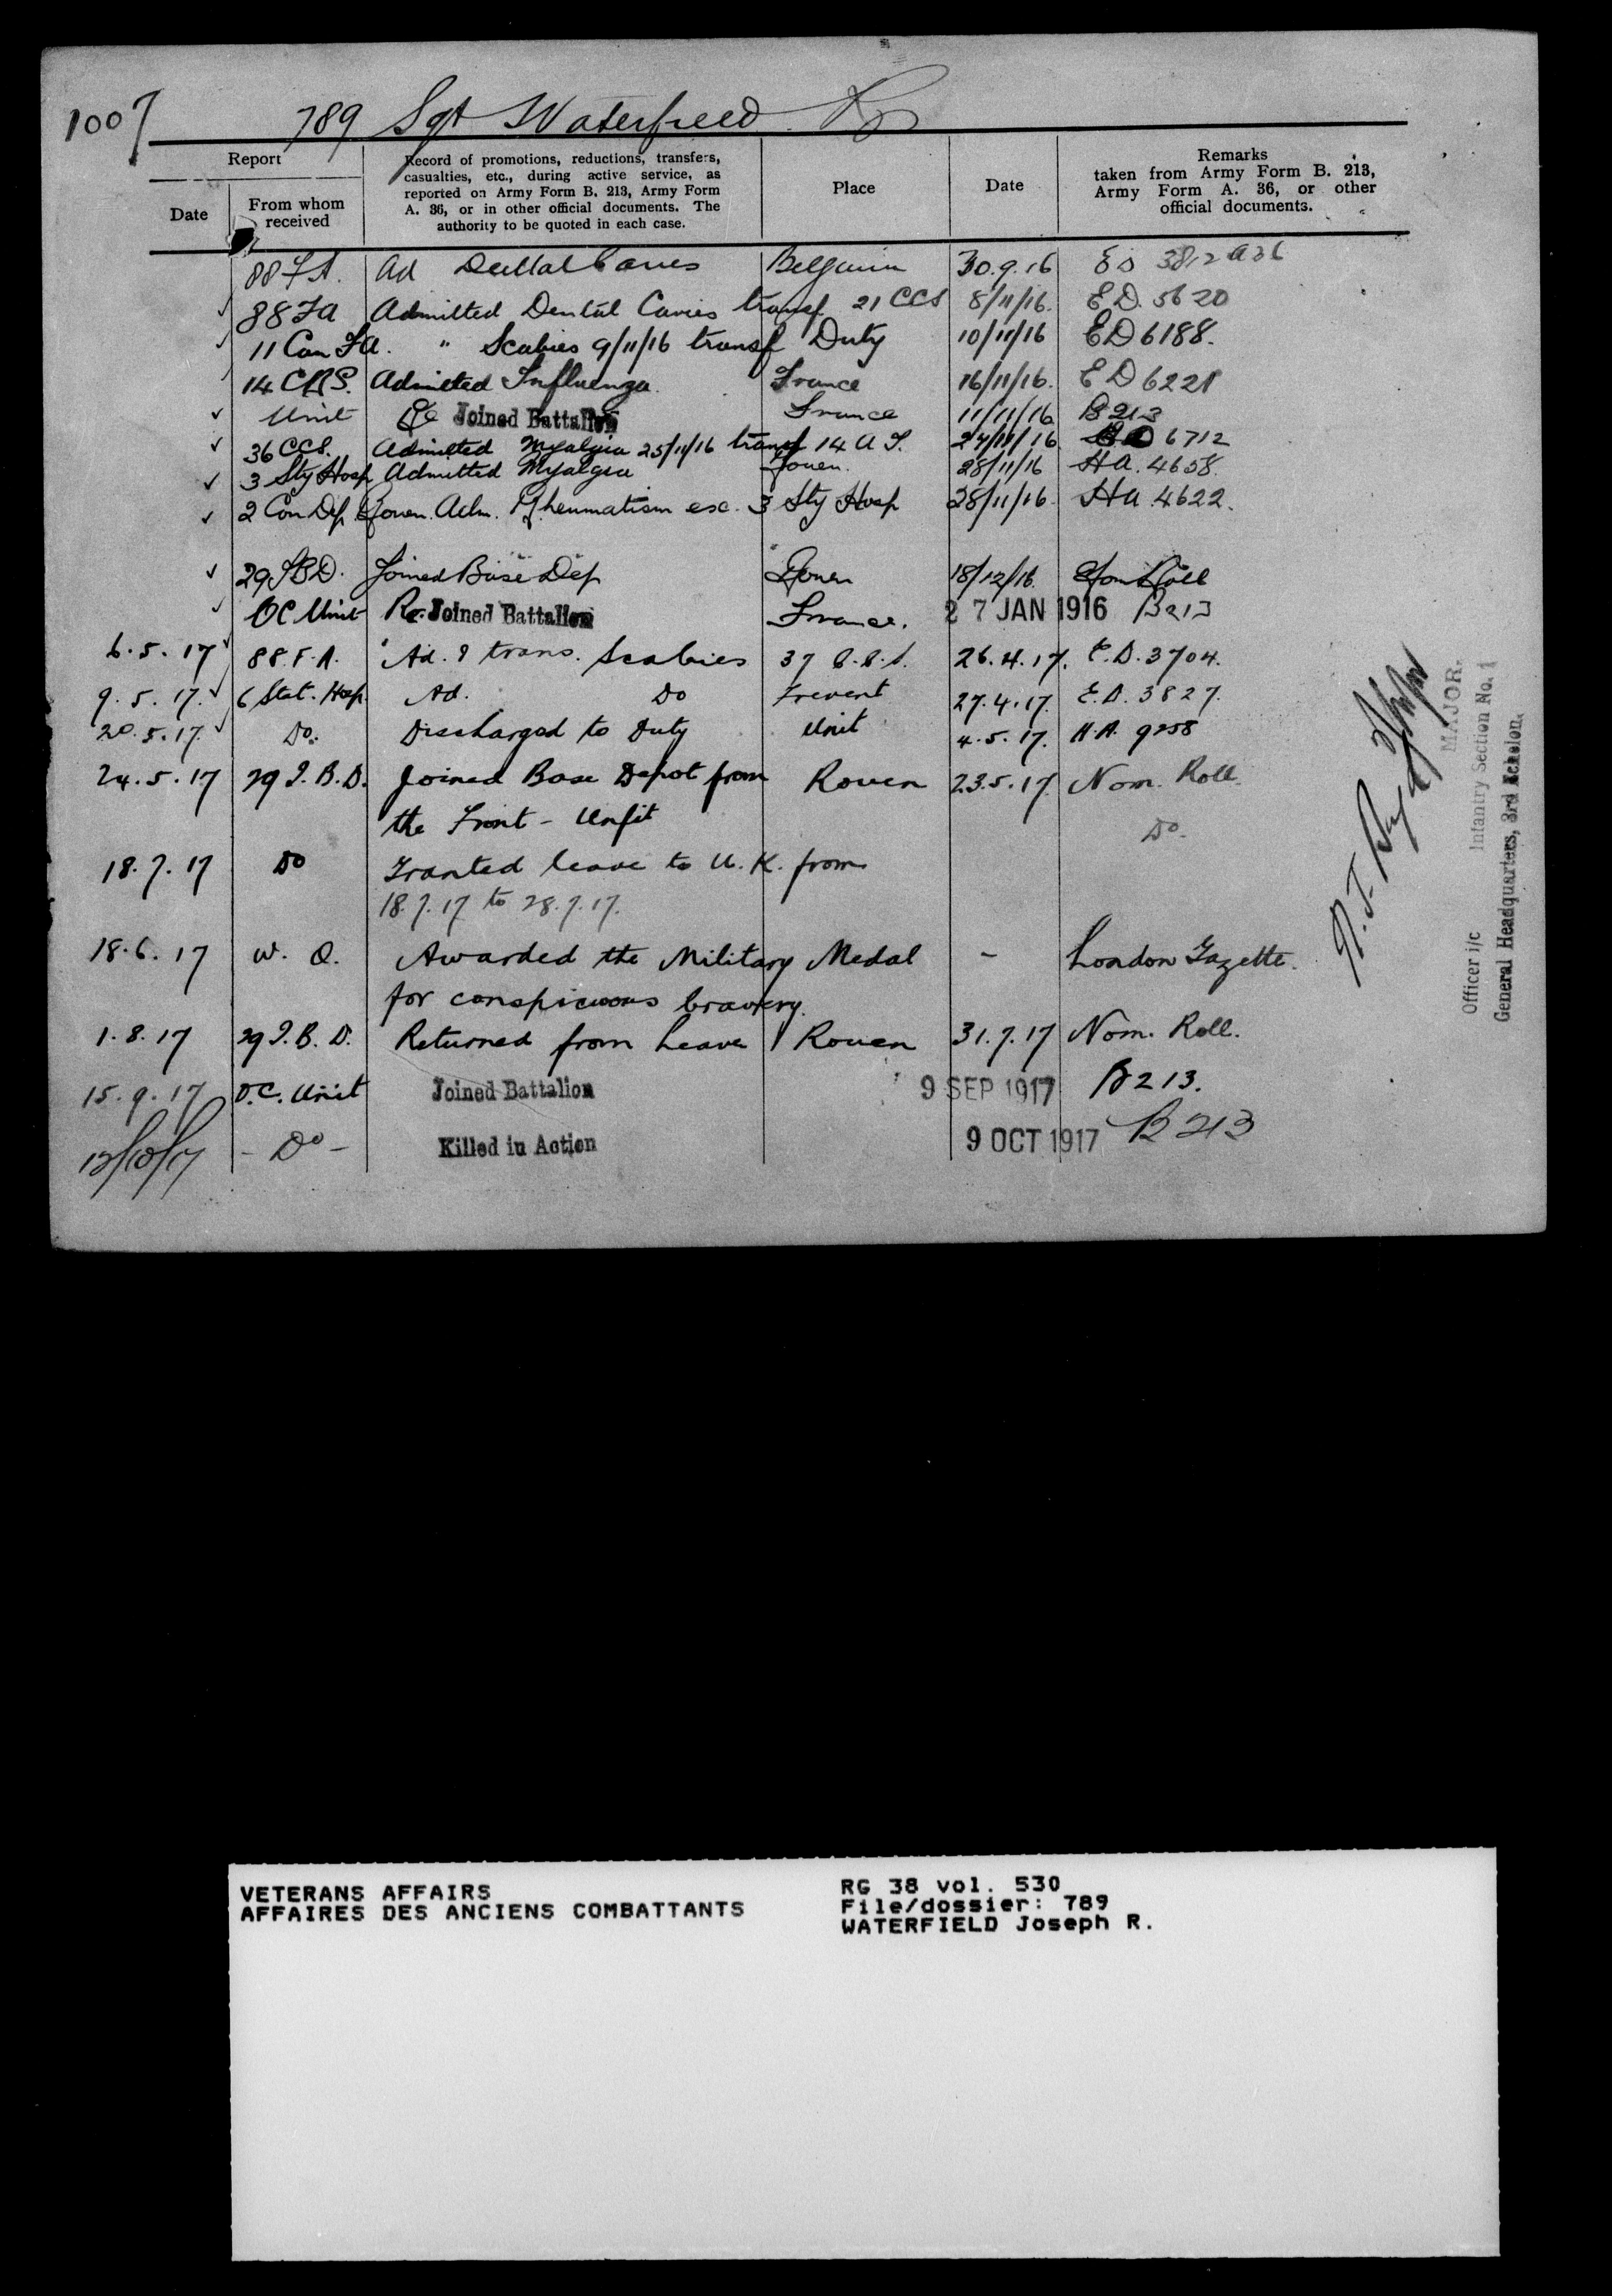 1007
789 Sgt Waterfield
Report
Date
From whom received
Record of promotions, reductions, transfers, casualties, etc., during active service, as reported on Army Form B. 213, Army Form A. 36, or in other official documents. The authority to be quoted in each case.
Place
Date
Remarks taken from Army Form B. 213, Army Form A. 36, or other official documents.
88 F A. Ad Dental Caries Belgium 30.9.16 ED 3812 A36
88 Fa Admitted Dental Caries transf. 21 CCS 8/11/16. E.D. 5620
11 Can Fa. " Scabies 9/11/16 transf Duty 10/11/16 ED 6188.
14 C.R.S. Admitted Influenza France 16/11/16. ED 6221
Unit Re Joined Battalion France 11/11/16 B213
36 CCS. Admitted Myalgia 25/11/16 transf 14 A T. 27/11/16 6712
3 Sty Hosp Admitted Myalgia Rouen. 28/11/16 HA. 4658
2 Con Dep Rouen. Adm. Rheumatism exc. 3 Sty Hosp 28/11/16. HA. 4622.
29 I B D. Joined Base Dep Rouen 18/12/16. Nom Roll
OC Unit Re. Joined Battalion France. 27 JAN 1916 B213
6.5.17 88.F.A. Ad. & trans. Scabies 37 C.C.S. 26.4.17. E.D. 3704.
9.5.17. 6 Stat. Hosp. Ad. Do Frevent 27.4.17. E.D. 3827.
20.5.17. Do. Discharged to Duty Unit 4.5.17. H.A. 9258
24.5.17 29 I.B.D. Joined Base Depot from Rouen 23.5.17. Nom. Roll.
the Front - Unfit
Do.
18.7.17 Do Granted leave to U.K. from
18.7.17 to 28.7.17.
18.6.17 W. O. Awarded the Military Medal - London Gazette.
for conspicuous bravery.
1.8.17 29 I.B.D. Returned from Leave Rouen 31.7.17 Nom. Roll.
15.9.17 O.C. Unit Joined Battalion 9 SEP 1917 B213.
12/10/17 - Do - Killed in Action 9 OCT 1917 B213
MAJOR.
Officer i/c Infantry Section No. 1
General Headquarters, 3rd Echelon.
VETERANS AFFAIRS
AFFAIRES DES ANCIENS COMBATTANTS
RG 38 vol. 530
File/dossier: 789
WATERFIELD Joseph R.